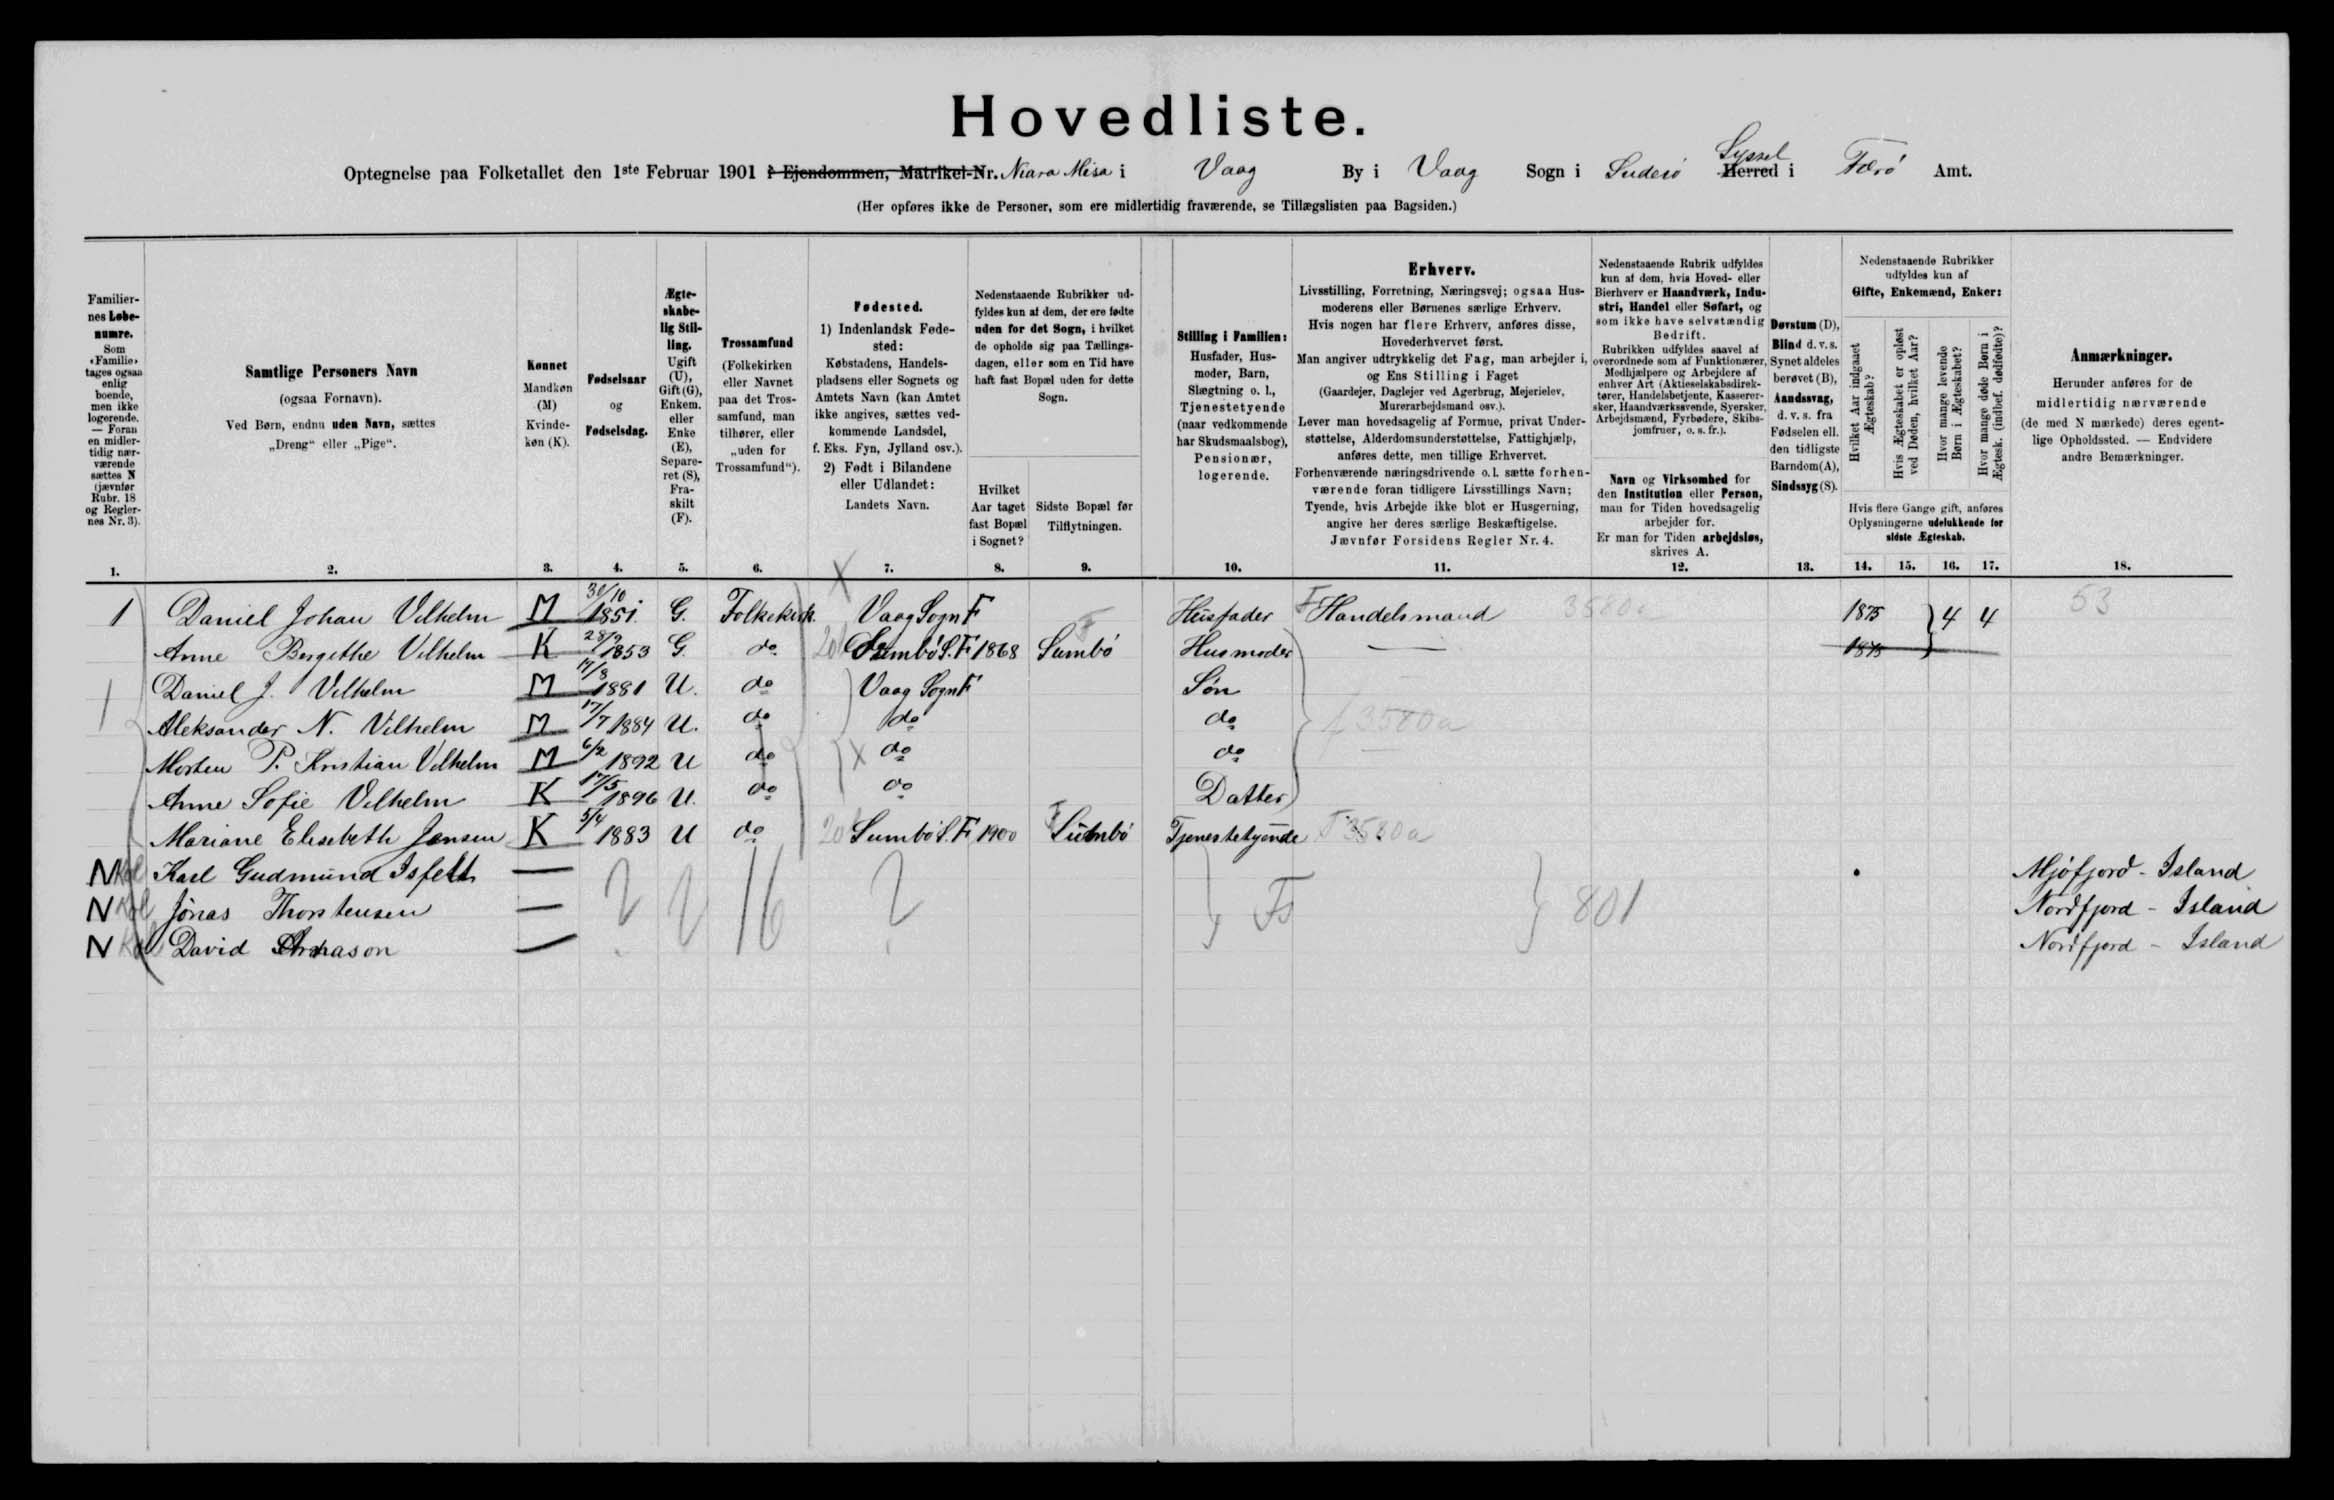 Hovedliste.
Optegnelse paa Folketallet den 1ste Februar 1901 i Ejendommen, Matrikel-Nr. Niara Misa i Vaag By i Vaag Sogn i Suderø Herred Syssel i Færø Amt.
(Her opføres ikke de Personer, som ere midlertidig fraværende, se Tillægslisten paa Bagsiden.)
Familiernes Løbenumre. Som «Familie» tages ogsaa enlig boende, men ikke logerende. — Foran en midlertidig nærværende sættes N (jævnfør Rubr. 18 og Reglernes Nr. 3).
Samtlige Personers Navn (ogsaa Fornavn). Ved Børn, endnu uden Navn, sættes „Dreng“ eller „Pige“.
Kønnet Mandkøn (M) Kvindekøn (K).
Fødselsaar og Fødselsdag.
Ægteskabelig Stilling. Ugift (U), Gift (G), Enkem. eller Enke (E), Separeret (S), Fraskilt (F).
Trossamfund (Folkekirken eller Navnet paa det Trossamfund, man tilhører, eller „uden for Trossamfund“).
Fødested. 1) Indenlandsk Fødested: Købstadens, Handelspladsens eller Sognets og Amtets Navn (kan Amtet ikke angives, sættes vedkommende Landsdel, f. Eks. Fyn, Jylland osv.). 2) Født i Bilandene eller Udlandet: Landets Navn.
Nedenstaaende Rubrikker udfyldes kun af dem, der ere fødte uden for det Sogn, i hvilket de opholde sig paa Tællingsdagen, eller som en Tid have haft fast Bopæl uden for dette Sogn.
Hvilket Aar taget fast Bopæl i Sognet?
Sidste Bopæl før Tilflytningen.
Stilling i Familien: Husfader, Husmoder, Barn, Slægtning o. l., Tjenestetyende (naar vedkommende har Skudsmaalsbog), Pensionær, logerende.
Erhverv. Livsstilling, Forretning, Næringsvej; ogsaa Husmoderens eller Børnenes særlige Erhverv. Hvis nogen har flere Erhverv, anføres disse, Hovederhvervet først. Man angiver udtrykkelig det Fag, man arbejder i, og Ens Stilling i Faget (Gaardejer, Daglejer ved Agerbrug, Mejerielev, Murerarbejdsmand osv.). Lever man hovedsagelig af Formue, privat Understøttelse, Alderdomsunderstøttelse, Fattighjælp, anføres dette, men tillige Erhvervet. Forhenværende næringsdrivende o. l. sætte forhenværende foran tidligere Livsstillings Navn; Tyende, hvis Arbejde ikke blot er Husgerning, angive her deres særlige Beskæftigelse. Jævnfør Forsidens Regler Nr. 4.
Nedenstaaende Rubrik udfyldes kun af dem, hvis Hoved- eller Bierhverv er Haandværk, Industri, Handel eller Søfart, og som ikke have selvstændig Bedrift. Rubrikken udfyldes saavel af overordnede som af Funktionærer, Medhjælpere og Arbejdere af enhver Art (Aktieselskabsdirektører, Handelsbetjente, Kasserersker, Haandværkssvende, Syersker, Arbejdsmænd, Fyrbødere, Skibsjomfruer, o. s. fr.).
Navn og Virksomhed for den Institution eller Person, man for Tiden hovedsagelig arbejder for. Er man for Tiden arbejdsløs, skrives A.
Døvstum (D), Blind d. v. s. Synet aldeles berøvet (B), Aandssvag, d. v. s. fra Fødselen ell. den tidligste Barndom (A), Sindssyg (S).
Nedenstaaende Rubrikker udfyldes kun af Gifte, Enkemænd, Enker:
Hvilket Aar indgaaet Ægteskab?
Hvis Ægteskabet er opløst ved Døden, hvilket Aar?
Hvor mange levende Børn i Ægteskabet?
Hvor mange døde Børn i Ægtesk. (indbef. dødfødte)?
Hvis flere Gange gift, anføres Oplysningerne udelukkende for sidste Ægteskab.
Anmærkninger. Herunder anføres for de midlertidig nærværende (de med N mærkede) deres egentlige Opholdssted. — Endvidere andre Bemærkninger.
1. 2. 3. 4. 5. 6. 7. 8. 9. 10. 11. 12. 13. 14. 15. 16. 17. 18.
1 Daniel Johan Vilhelm M 30/10 1851 G. Folkekirk. Vaag Sogn F Husfader F Handelsmand 3580a 1875 4 4 53
Anne Bergithe Vilhelm K 28/9 1853 G. do Sumbø S. F 1868 Sumbø Husmoder — 1875
Daniel J. Vilhelm M 1881 U. do Vaag Sogn F Søn
Aleksander N. Vilhelm M 17/7 1884 U. do do do 3580a
Morten P. Kristian Vilhelm M 6/2 1892 U do do do
Anne Sofie Vilhelm K 17/5 1896 U. do do Datter
Mariane Elisebeth Jensen K 5/4 1883 U do Sumbø S. F 1900 Sumbø Tjenestetyende 3580a
N Karl Gudmund Isfelt — ? ? 16 ? Fs 801 Mjófjord - Island
N Jónas Thorsteusen — Nordfjord - Island
N David — Nordfjord - Island